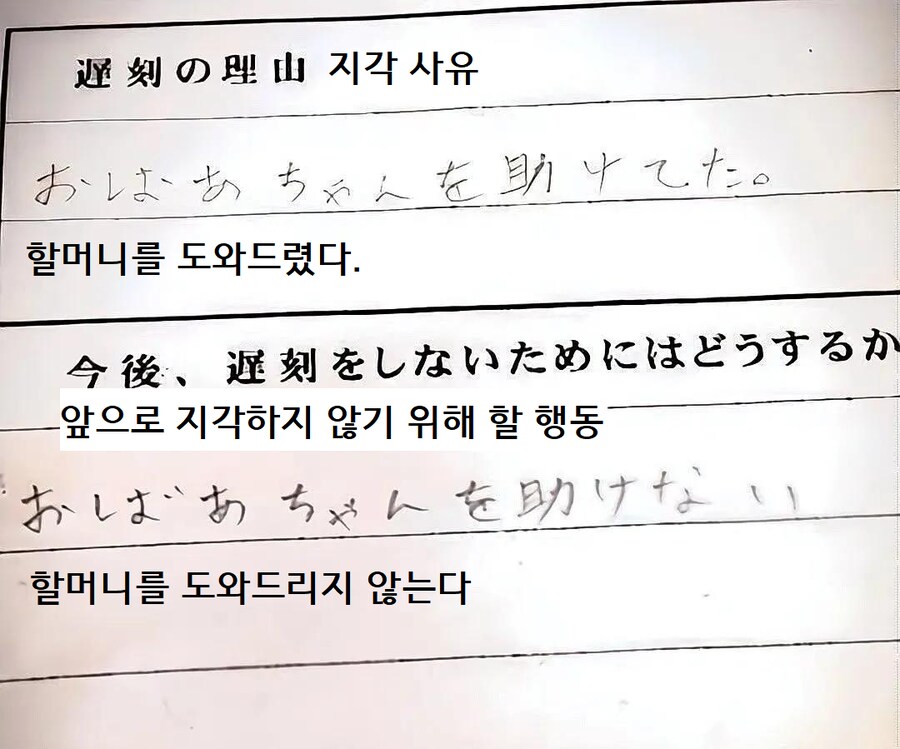 遅刻の理由 지각 사유
おばあちゃんを助けてた。
할머니를 도와드렸다.
今後、遅刻をしないためにはどうするか
앞으로 지각하지 않기 위해 할 행동
おばあちゃんを助けない
할머니를 도와드리지 않는다